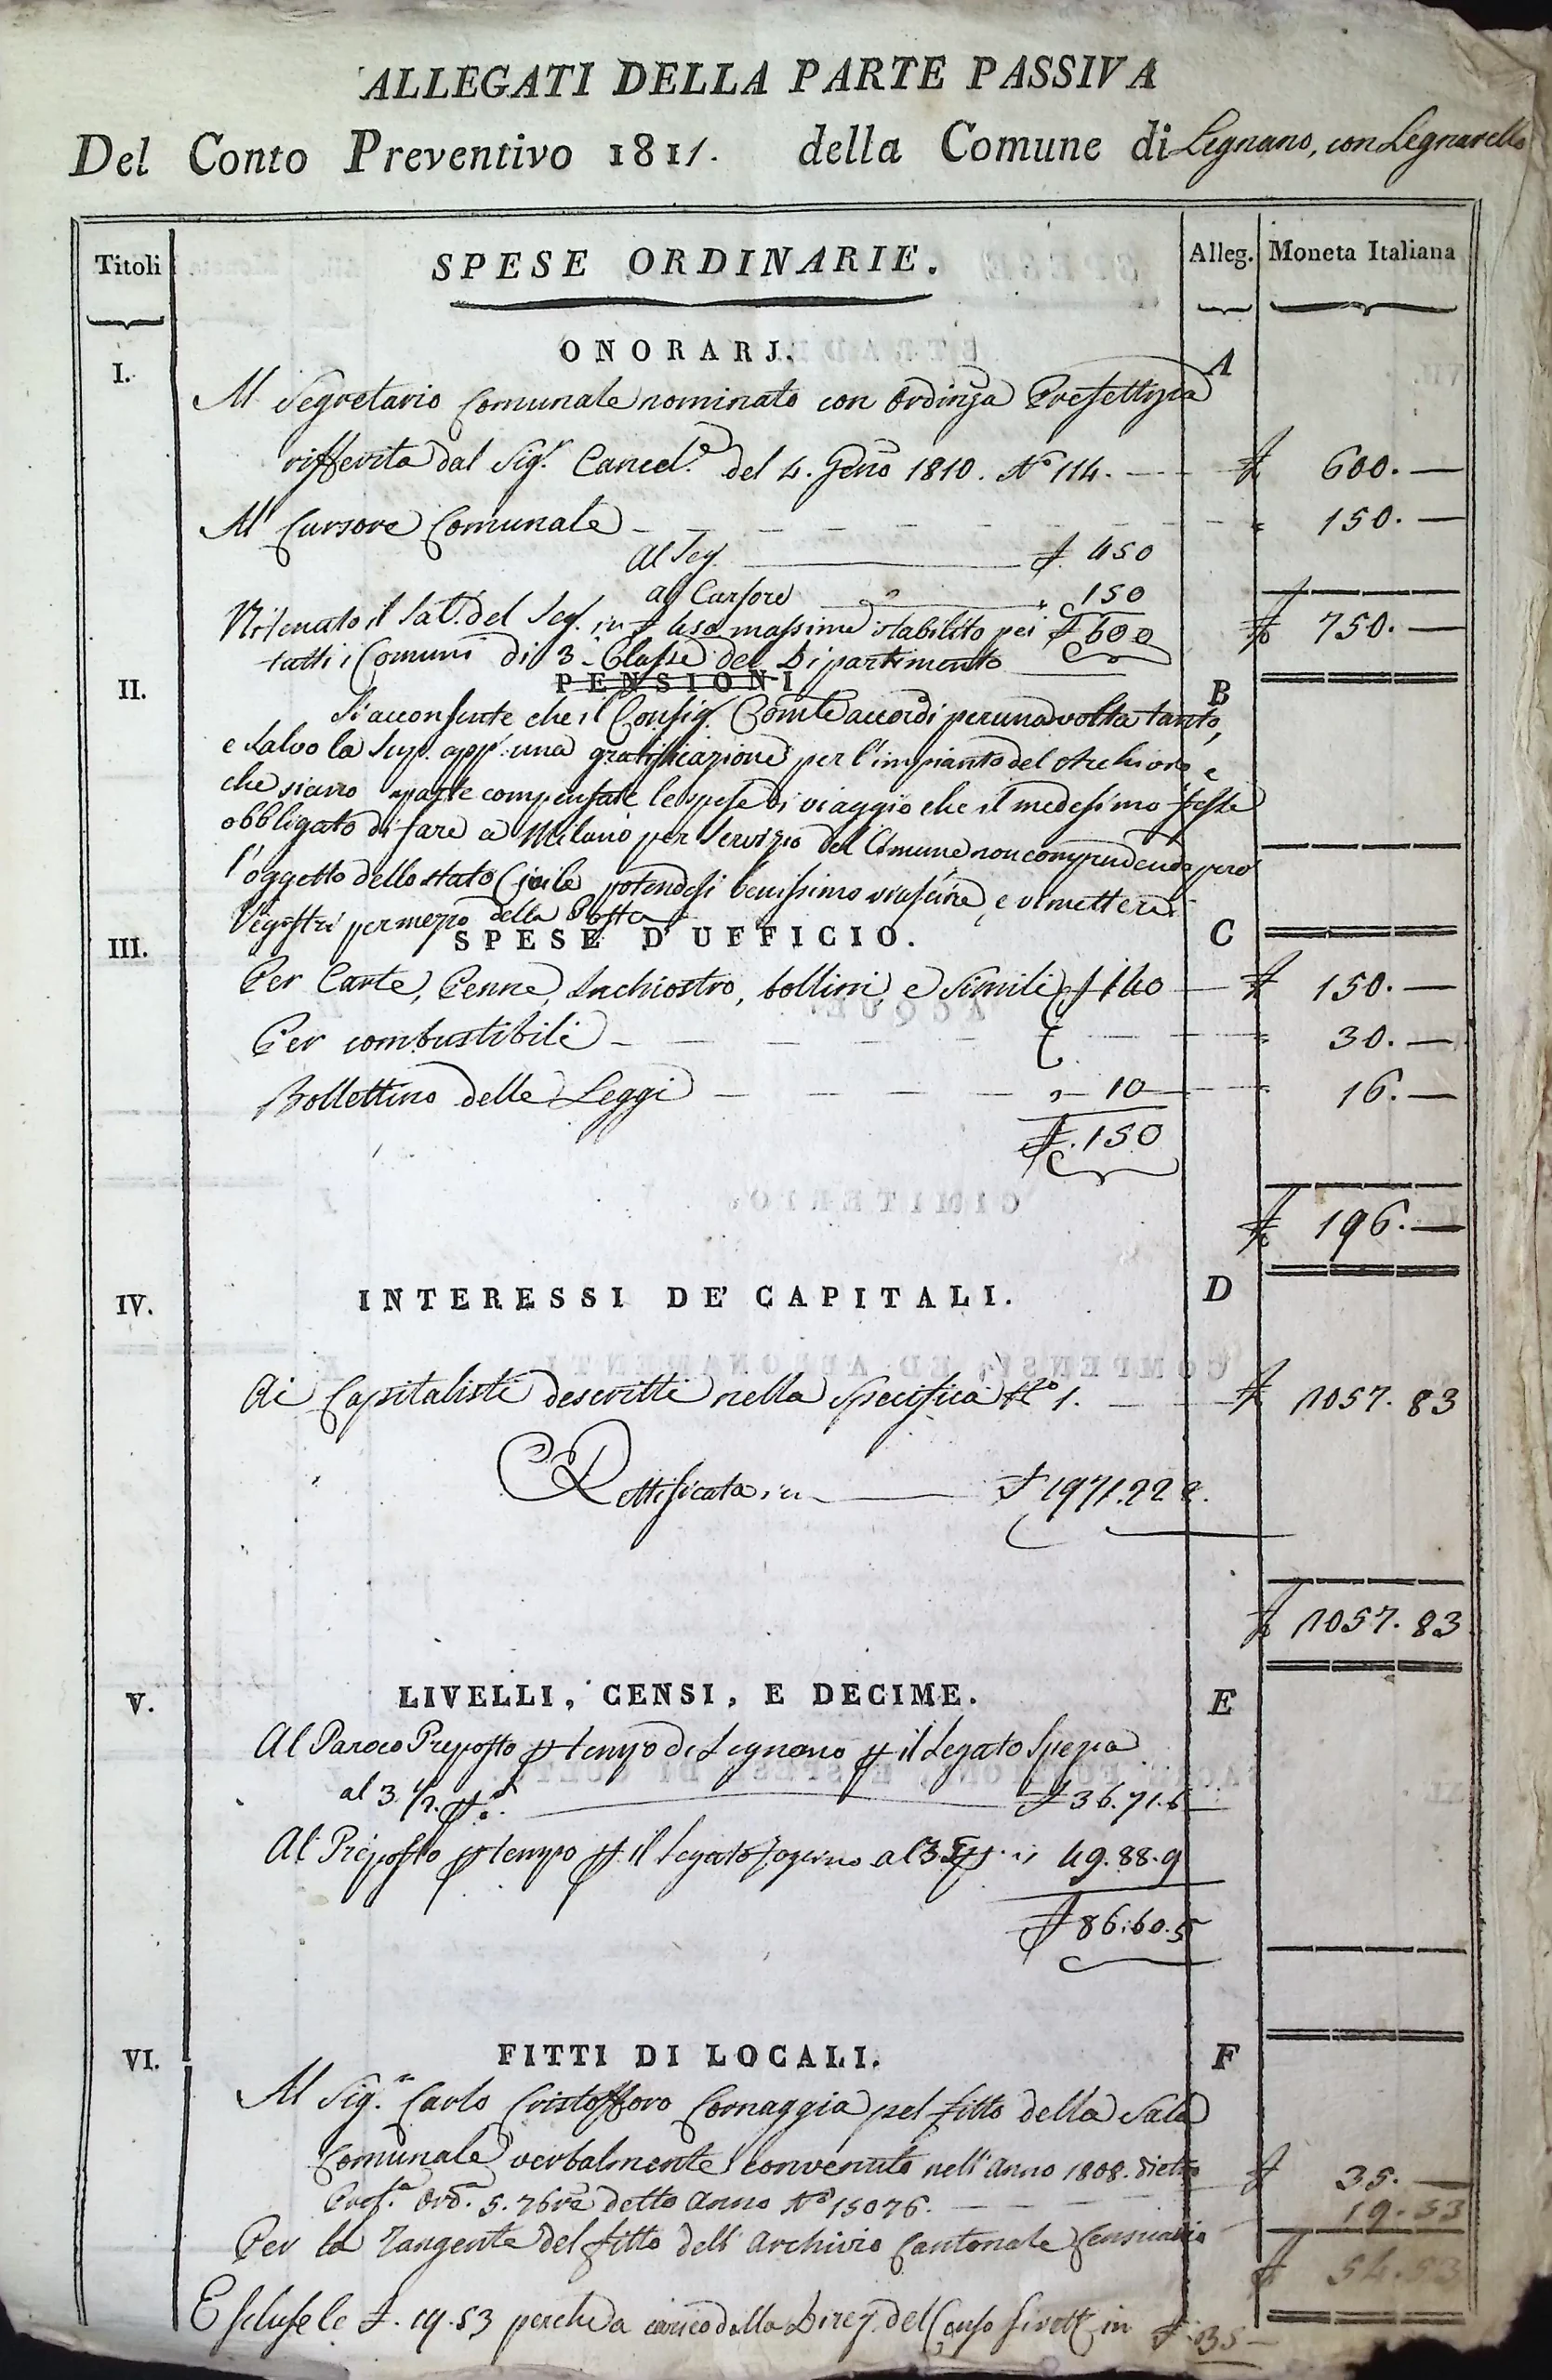 ALLEGATI DELLA PARTE PASSIVA
Del Conto Preventivo 1811. della Comune di Legnano, con Legnarello
Titoli SPESE ORDINARIE. Alleg. Moneta Italiana
I. ONORARJ. A
Al Segretario Comunale nominato con Ordinza Prefettizia
rifferita dal Sigr. Cancel.e del 4. Geno 1810. No 114. — £ 600. —
Al Cursore Comunale — " 150. —
Al Seg. — £ 450
al Cursore " 150
£ 600 £ 750. —
Ritenuto il Sal. del Seg. in £ 450 massimo stabilito pei
tutti i Comuni di 3. Classe del Dipartimento
II. PENSIONI B
Si acconsente che il Consig. Comle accordi per una volta tanto,
e salvo la Sup. app. una gratificazione per l'impianto del Archivio e
che siano a parte compensate le spese di viaggio che il medesimo fosse
obbligato di fare a Milano per Servizio del Comune non comprendendo però
l'oggetto dello stato Civile potendosi benissimo e rimettere i
Registri per mezzo della Posta
III. SPESE D'UFFICIO. C
Per Carte, Penne, Inchiostro, bollini, e Simili £ 140 — £ 150. —
Per combustibili — " 30. —
Bollettino delle Leggi — " 10 — " 16. —
£. 150
£ 196. —
IV. INTERESSI DE' CAPITALI. D
Ai Capitalisti descritti nella Specifica No 1. — £ 1057. 83
Rettificata in — £ 1971.22 2.
£ 1057. 83
V. LIVELLI, CENSI, E DECIME. E
Al Paroco Preposto p tempo di Legnano p il Legato Spezia
al 3 1/2. p.o — £ 36.71.6
Al Preposto p tempo p il Legato al 3 49.88.9
£ 86.60.5
VI. FITTI DI LOCALI. F
Al Sigr. Carlo Cristofforo Cornaggia pel fitto della Sala
Comunale verbalmente convenuto nell'anno 1808. dietro £ 35. —
Pref.a Ord.a 5. 7bre detto Anno No 15076. — 19.53
Per la Tangente del fitto dell'Archivio Cantonale Censuario
£ 54.53
Escluse le £. 19.53 perche a carico della Direz. del Censo si rett. in £. 35 —